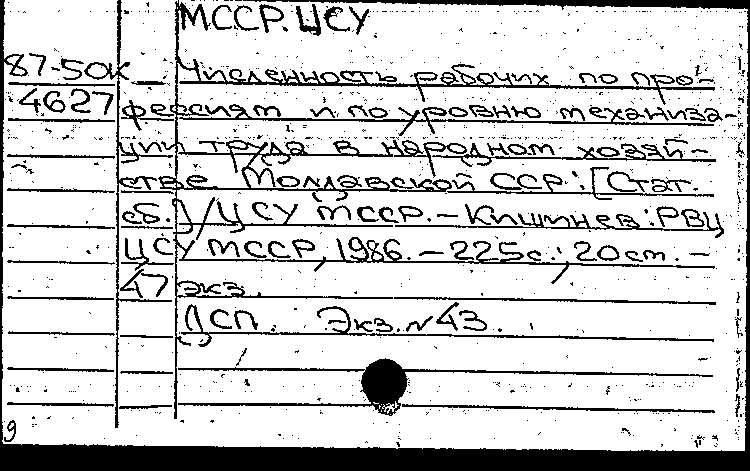 МССР. ЦСУ
87-50К Численность рабочих по про-
4627 фессиям и по уровню механиза-
ции труда в народном хозяй-
стве Молдавской ССР: [Стат.
сб.] / ЦСУ МССР. – Кишинев: РВЦ
ЦСУ МССР, 1986. – 225 с.; 20 см. –
47 экз.
ДСП. Экз. № 43.
9